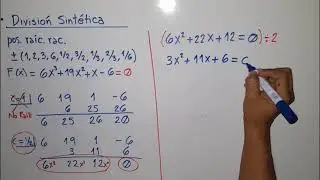 • División Sintética
pos. raí. rac.
± (1, 2, 3, 6, 1/2, 3/2, 1/3, 2/3, 1/6)
F(x) = 6x³+19x²+x-6=0
c=1 6 19 1 -6
No Raíz 6 25 26
6 25 26 20
c=1/2 6 19 1 -6
3 11 6
6x² 22x¹ 12x⁰ 0
(6x² + 22x + 12 = 0) ÷ 2
3x² + 11x + 6 =